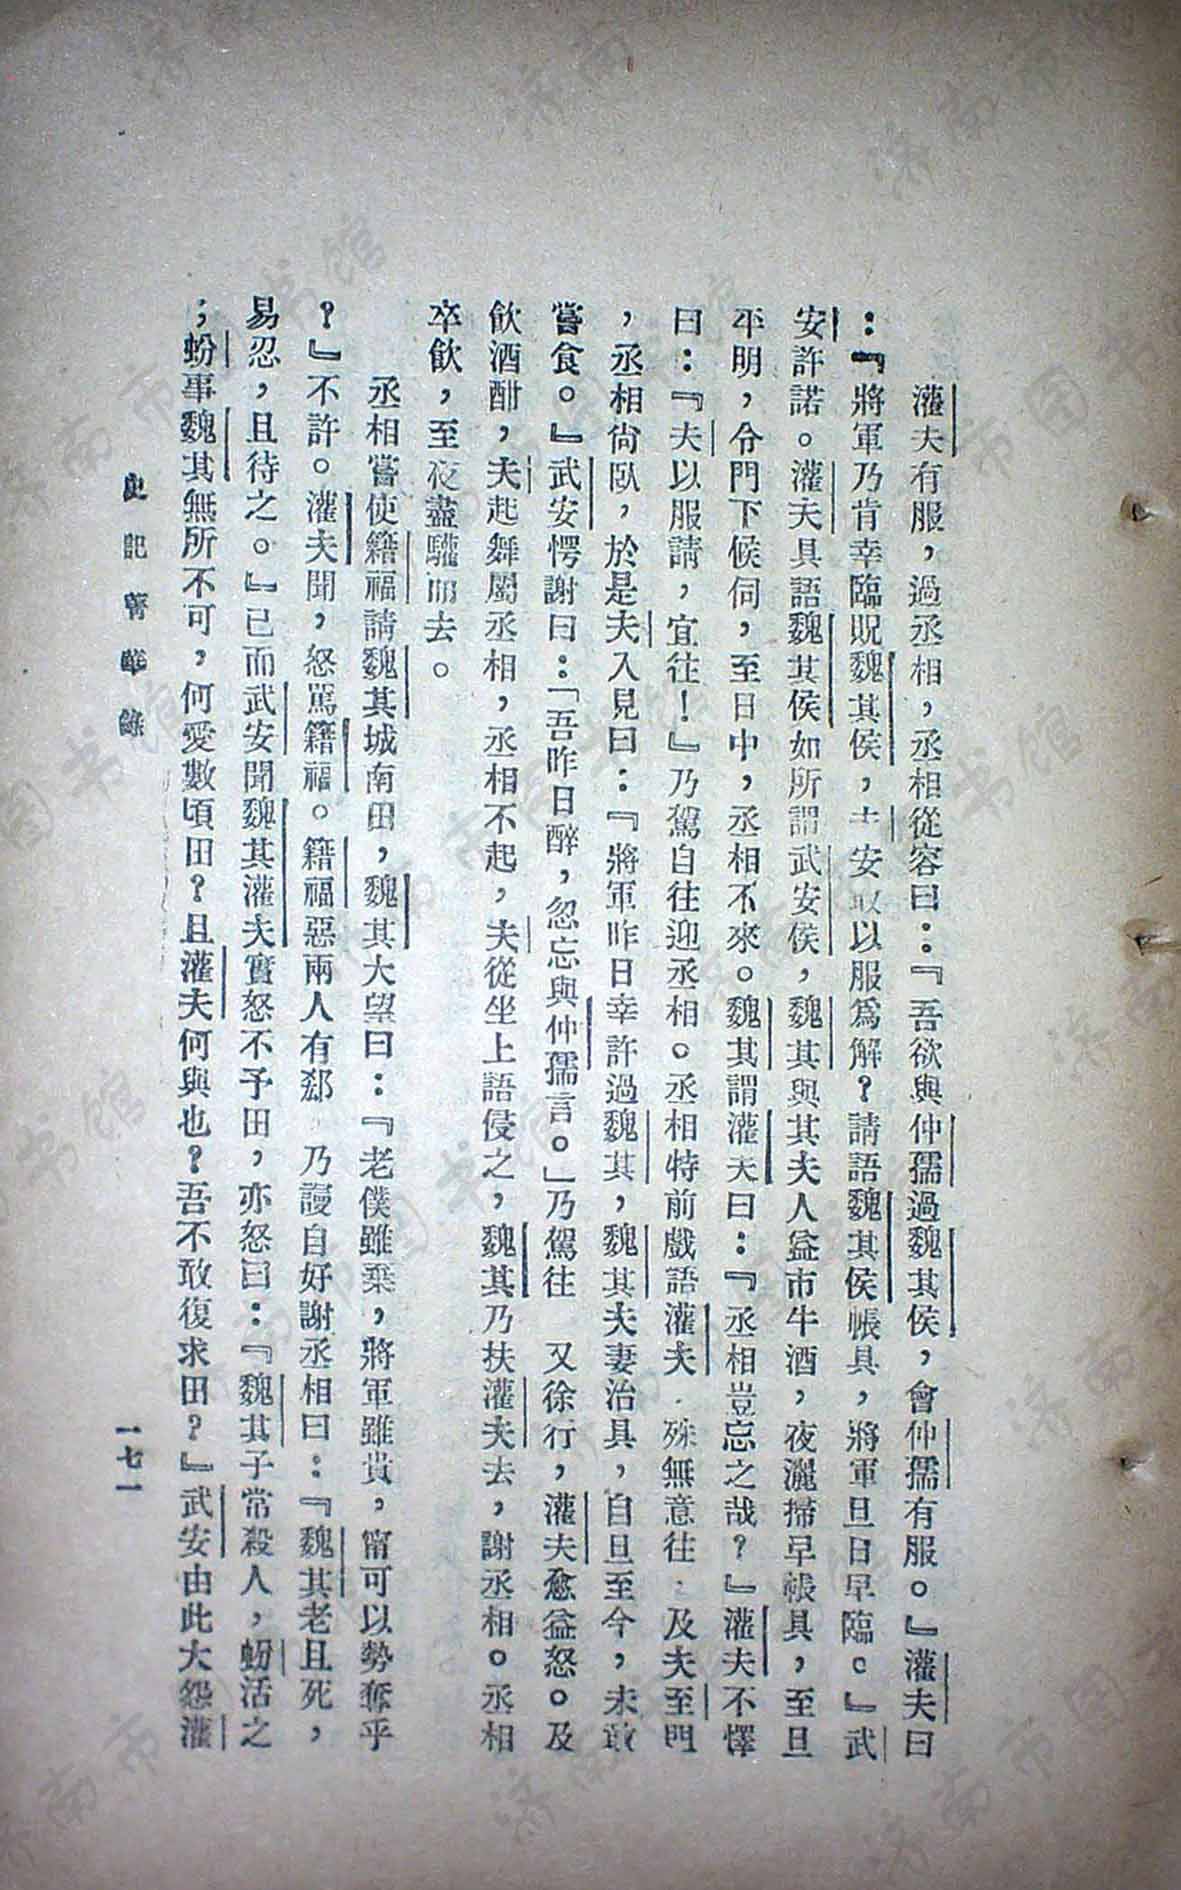 灌夫有服，過丞相，丞相從容曰：『吾欲與仲孺過魏其侯，會仲孺有服。』灌夫曰
：『將軍乃肯幸臨貺魏其侯，夫安敢以服爲解？請語魏其侯帳具，將軍旦日早臨。』武
安許諾。灌夫具語魏其侯如所謂武安侯，魏其與其夫人益市牛酒，夜灑掃早帳具，至旦
平明，令門下候伺，至日中，丞相不來。魏其謂灌夫曰：『丞相豈忘之哉？』灌夫不懌
曰：『夫以服請，宜往！』乃駕自往迎丞相。丞相特前戲語灌夫，殊無意往，及夫至門
，丞相尙臥，於是夫入見曰：『將軍昨日幸許過魏其，魏其夫妻治具，自旦至今，未敢
嘗食。』武安愕謝曰：「吾昨日醉，忽忘與仲孺言。」乃駕往 又徐行，灌夫愈益怒。及
飮酒酣，夫起舞屬丞相，丞相不起，夫從坐上語侵之，魏其乃扶灌夫去，謝丞相。丞相
卒飮，至夜盡驩而去。
丞相嘗使籍福請魏其城南田，魏其大望曰：『老僕雖棄，將軍雖貴，甯可以勢奪乎
？』不許。灌夫聞，怒駡籍福。籍福惡兩人有郄，乃謾自好謝丞相曰：『魏其老且死，
易忍，且待之。』已而武安聞魏其灌夫實怒不予田，亦怒曰：『魏其子常殺人，蚡活之
；蚡事魏其無所不可，何愛數頃田？且灌夫何與也？吾不敢復求田？』武安由此大怨灌
史記菁華錄
一七一
济南市图书馆